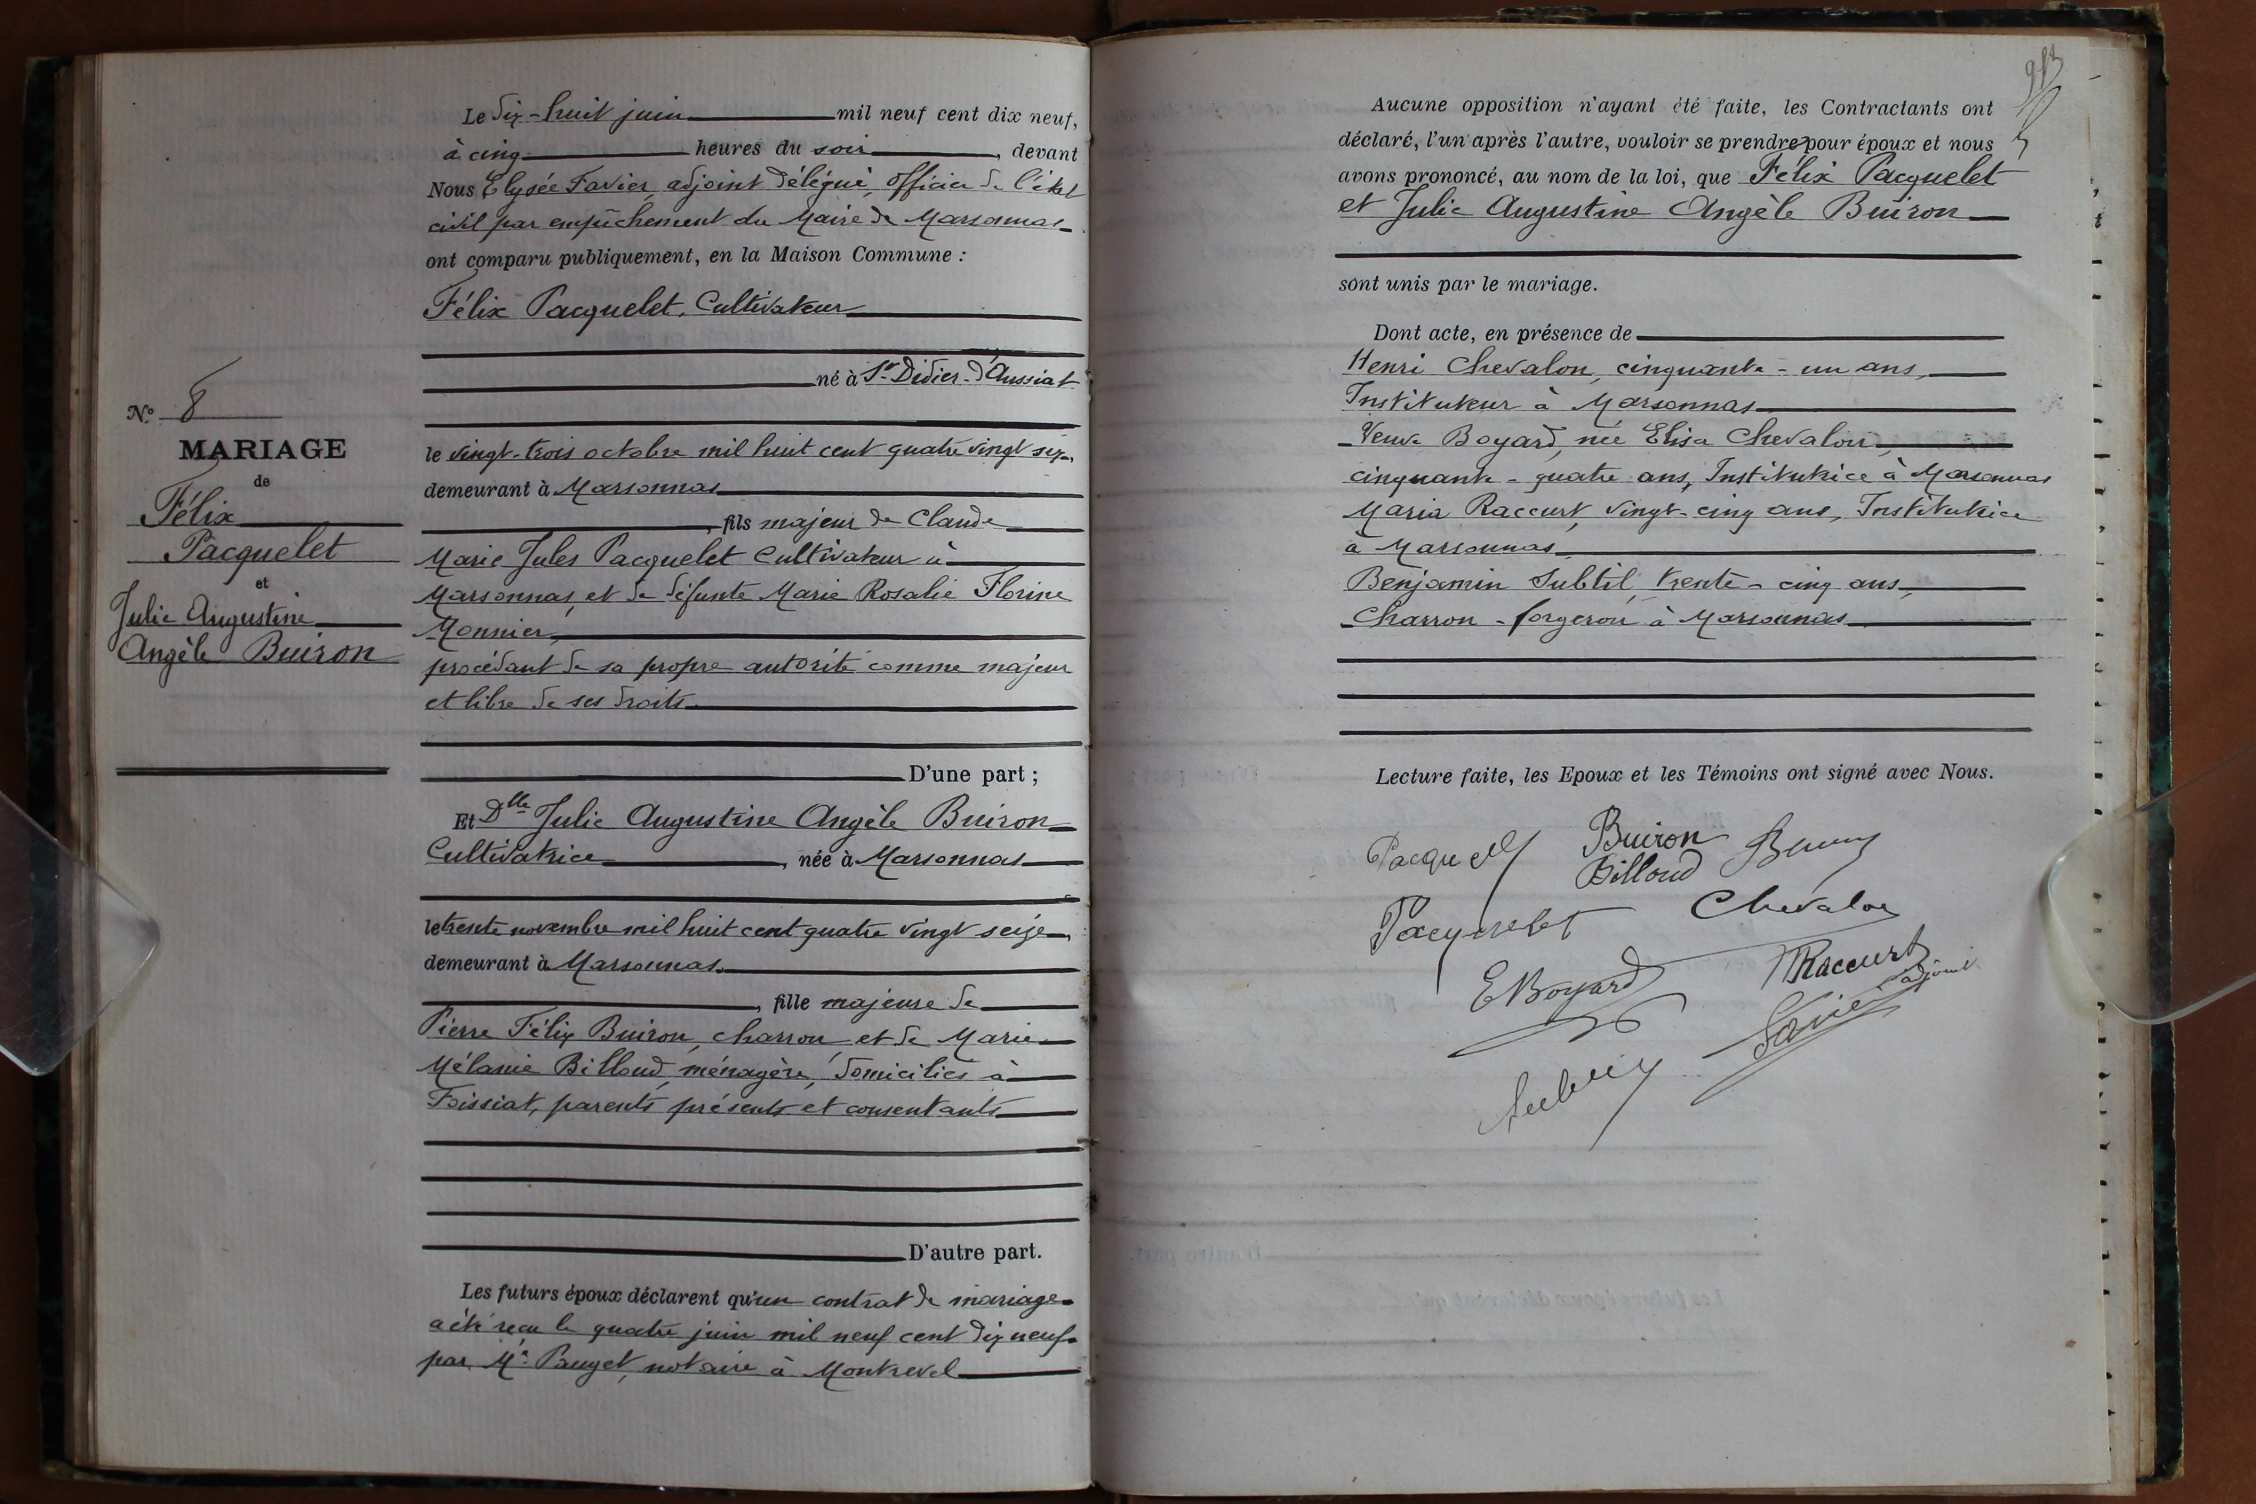 N.° 8
MARIAGE
de
Félix
Pacquelet
et
Julie Augustine
Angèle Buiron
Le dix-huit juin mil neuf cent dix neuf,
à cinq heures du soir, devant
Nous Elysée Favier, adjoint délégué, officier de l'état
civil par empêchement du Maire de Marsonnas
ont comparu publiquement, en la Maison Commune :
Félix Pacquelet, Cultivateur
né à St-Didier-d'Aussiat
le vingt-trois octobre mil huit cent quatre vingt six,
demeurant à Marsonnas
, fils majeur de Claude
Marie Jules Pacquelet Cultivateur à
Marsonnas, et de défunte Marie Rosalie Florine
Monnier,
procédant de sa propre autorité comme majeur
et libre de ses droits
D'une part ;
Et Dlle Julie Augustine Angèle Buiron
Cultivatrice, née à Marsonnas
le trente novembre mil huit cent quatre vingt seize,
demeurant à Marsonnas
, fille majeure de
Pierre Félix Buiron, charron, et de Marie
Mélanie Billoud, ménagère, domiciliés à
Foissiat, parents présents et consentants
D'autre part.
Les futurs époux déclarent qu'un contrat de mariage
a été reçu le quatre juin mil neuf cent dix neuf
par Me Pauget, notaire à Montrevel
Aucune opposition n'ayant été faite, les Contractants ont
déclaré, l'un après l'autre, vouloir se prendre pour époux et nous
avons prononcé, au nom de la loi, que Félix Pacquelet
et Julie Augustine Angèle Buiron
sont unis par le mariage.
Dont acte, en présence de
Henri Chevalon, cinquante-un ans,
Instituteur à Marsonnas
Veuve Boyard, née Elisa Chevalon,
cinquante-quatre ans, Institutrice à Marsonnas
Maria Raccurt, vingt-cinq ans, Institutrice
à Marsonnas
Benjamin Subtil, trente-cinq ans,
Charron-forgeron à Marsonnas
Lecture faite, les Epoux et les Témoins ont signé avec Nous.
Buiron
Billoud
Pacquelet
Chevalon
E Boyard
Raccurt
Favier adjoint